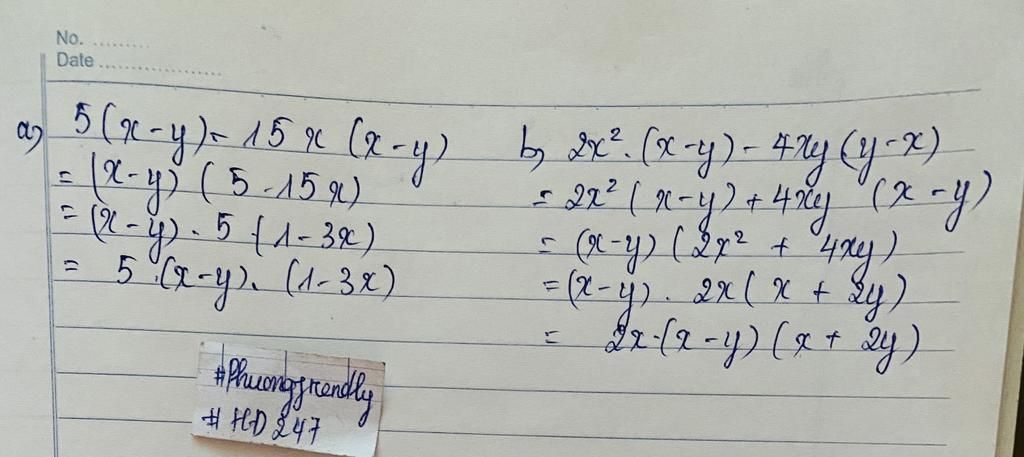 No. .........
Date .....................
a) 5(x-y) - 15x (x-y)
= (x-y) (5-15x)
= (x-y) . 5 (1-3x)
= 5 .(x-y). (1-3x)
b) 2x². (x-y) - 4xy (y-x)
= 2x² (x-y) + 4xy (x-y)
= (x-y) (2x² + 4xy)
= (x-y) . 2x (x + 2y)
= 2x.(x-y) (x + 2y)
#Phuongfrendly
# HD 247